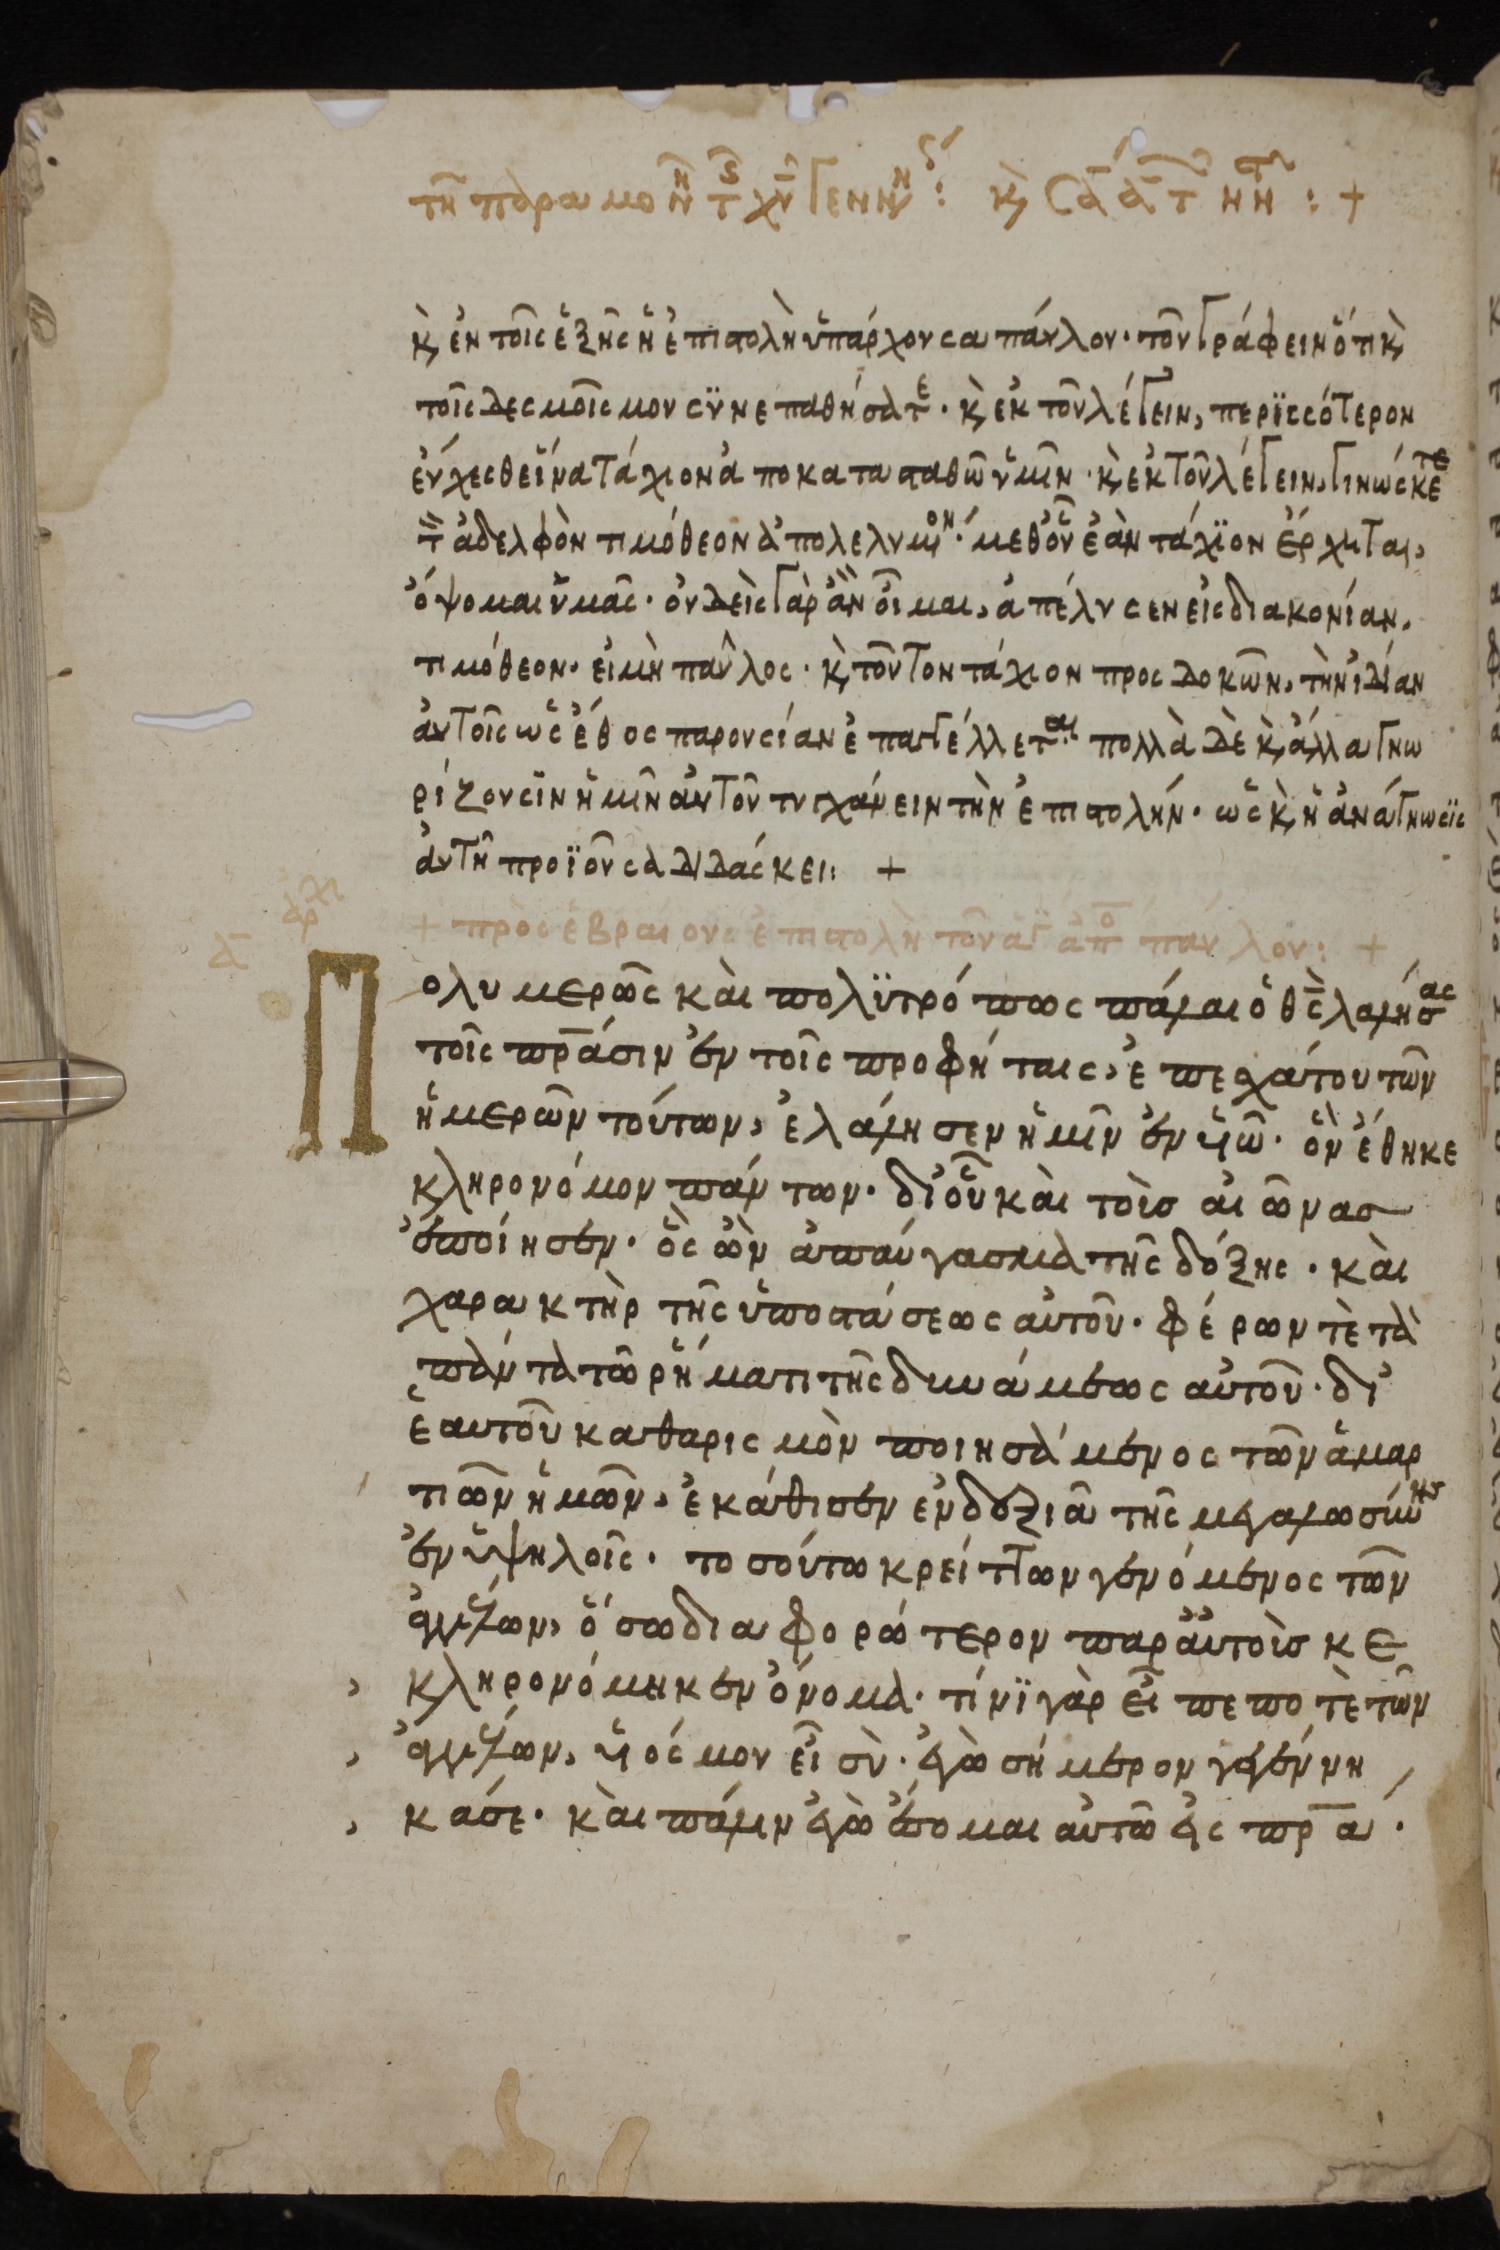 τῆ παραμονῆ τ χῦ γενν: κ, σα α τ νη: +
κ, ἐν τοῖς ἑξῆς ἡ ἐπιστολὴ ὑπάρχουσα πάυλου· τοῦ γράφειν ὅτι κ,
τοῖς δεσμοῖς μου σϋνεπαθήσατε· κ, ἐκ τοῦ λέγειν, περϊσσότερον
ἐύχεσθε ἵνα τάχιον ἀποκατασταθῶ ὑμῖν· κ, ἐκ τοῦ λέγειν, γινώσκετε
τ ἀδελφὸν τιμόθεον ἀπολελυμον· μεθοῦ ἐὰν τάχϊον ἔρχηται,
ὄψομαι ὑμᾶς· ὀυδεὶς γὰρ ἂν οἶμαι, ἀπέλυσεν εἰς διακονίαν,
τιμόθεον· εἰμὴ παῦλος· κ, τοῦτον τάχιον προσδοκῶν, τὴν ἰδίαν
ἀυτοῖς ὡς ἔθος παρουσίαν ἐπαγγέλλεται πολλὰ δὲ κ, ἄλλα γνω
ρίζουσϊν ἡμῖν ἀυτοῦ τυγχάνειν τὴν ἐπιστολήν· ὡς κ, ἡ ἀνάγνωσϊς
ἀυτὴ προϊοῦσα διδάσκει: +
ἀρχι
α
+ πρὸς ἑβραίους ἐπιστολὴ τοῦ ἁγ ἀπο πάυλου: +
Πολυμερῶς κὰι πολϋτρόπως πάλαι ὁ θς λαλήσας
τοῖς πράσιν ἐν τοῖς προφήταις, ἐπεσχάτου τῶν
ἡμερῶν τούτων, ἐλάλησεν ἡμῖν ἐν υἱῶ· ὃν ἔθηκε
κληρονόμον πάντων· δἰοὗ κὰι τοὺσ αἰῶνασ
ἐποίησεν· ὃς ὢν ἀπαύγασμα τῆς δόξης· κὰι
χαρακτὴρ τῆς ὑποστάσεως αὐτοῦ· φέρων τὲ τὰ
πάντα τῶ ῥήματι τῆς δυνάμεως αὐτοῦ· δἰ
ἑαυτοῦ καθαρισμὸν ποιησάμενος τῶν ἁμαρ
τιῶν ἡμῶν, ἐκάθισεν ἐν δεξιᾶ τῆς μεγαλωσύνης
ἐν ὑψηλοῖς· τοσούτω κρείττων γενόμενος τῶν
ἀγγέλων, ὅσω διαφορώτερον παρἀυτοὺσ κε
κληρονόμηκεν ὄνομα· τίνϊ γὰρ εἶπε ποτὲ τῶν
ἀγγέλων, υἱός μου εἶ σὺ· ἐγὼ σήμερον γεγέννη
κάσε· κὰι πάλιν ἐγὼ ἔσομαι αὐτῶ εἰς πρα·